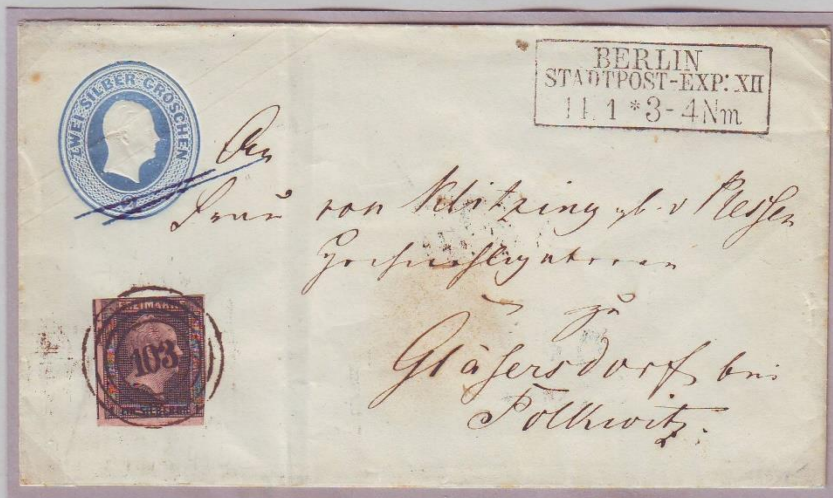 ZWEI SILBER GROSCHEN
2
BERLIN
STADTPOST-EXP: XII
11 1 * 3-4 Nm
An
Frau von Klitzing geb. v Plessen
zu
Gläsersdorf bei
Polkwitz.
FREIMARKE
103
EIN SILBERGR.